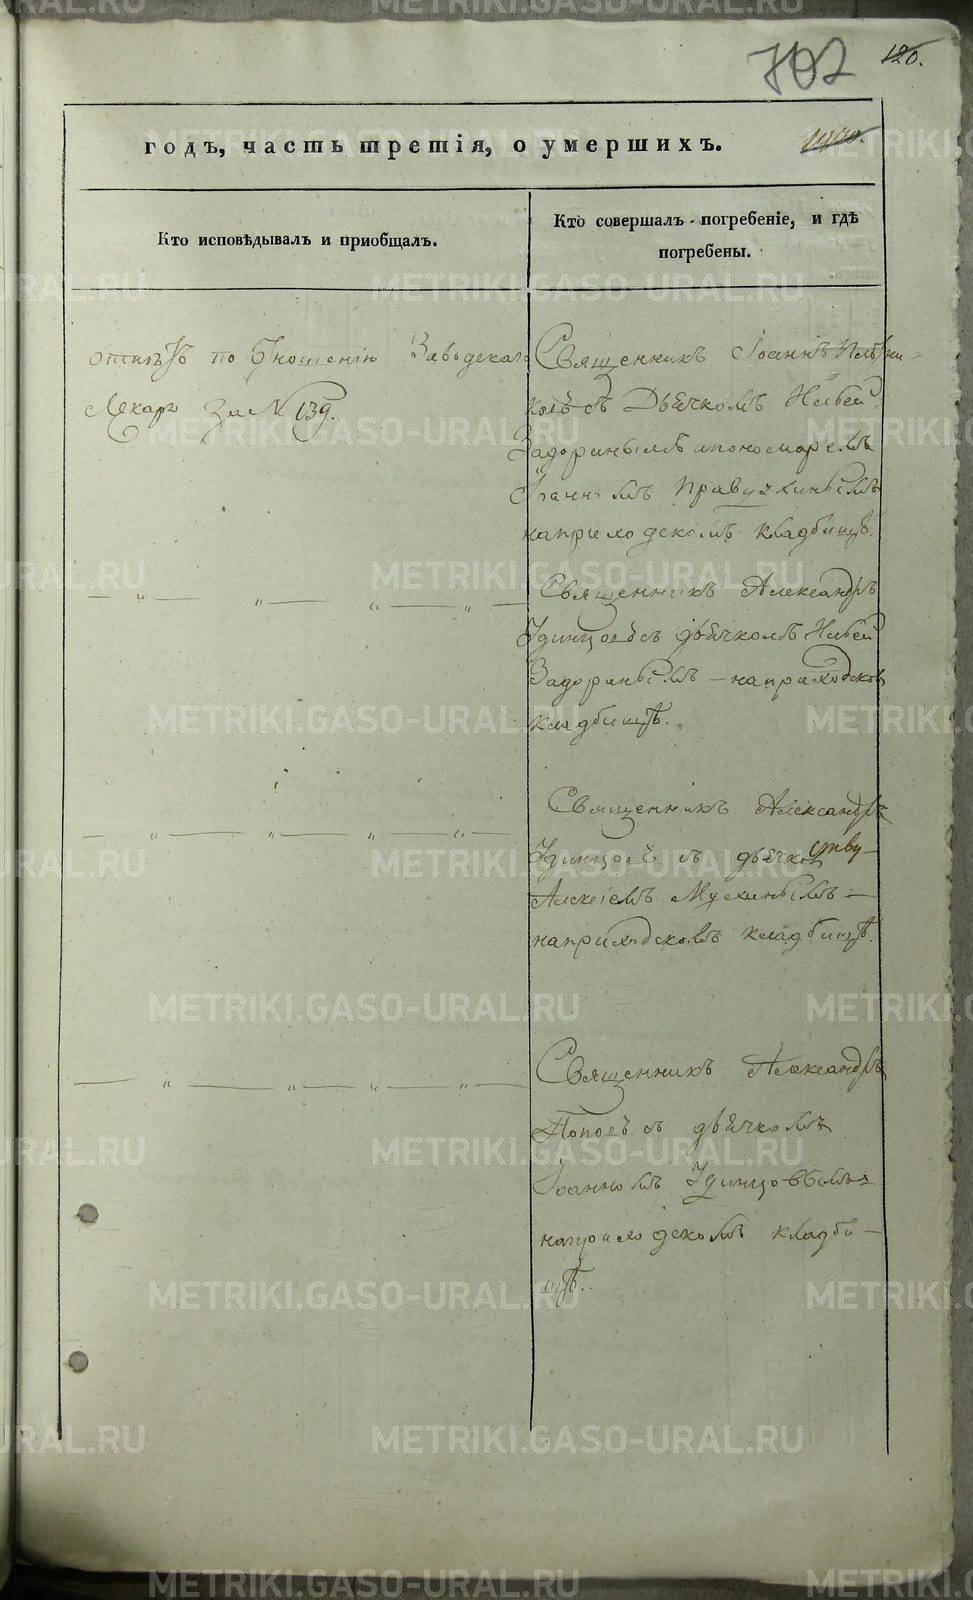 702
120.
годъ, часть третія, о умершихъ.
Кто исповѣдывалъ и приобщалъ.
Кто совершалъ погребеніе, и гдѣ
погребены.
по Отношенію Заводскаго
Лекаря За № 139.
Священникъ Іоаннъ
съ Дьячкомъ
Задоринымъ и пономаремъ
Іоанномъ
на приходскомъ кладбищѣ.
Священникъ Александръ
Удинцовъ съ дьячкомъ
Задоринымъ – на приходском
кладбищѣ.
Священникъ Александръ
Удинцовъ съ
Алексіемъ Мухинымъ –
на приходскомъ кладбищѣ.
Священникъ Александръ
Поповъ съ дьячкомъ
Іоанномъ Удинцовымъ
на приходскомъ кладби–
щѣ.
METRIKI.GASO-URAL.RU